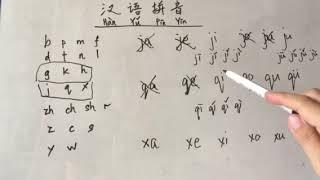 汉语拼音
Hàn Yǔ Pīn Yīn
b p m f
d t n l
g k h
j q x
zh ch sh r
z c s
y w
ja je ji jo ju
jī jí jǐ jì jū jú jǔ jù
qa qe qi qo qu qü
qī qí qǐ qì
xa xe xi xo xu